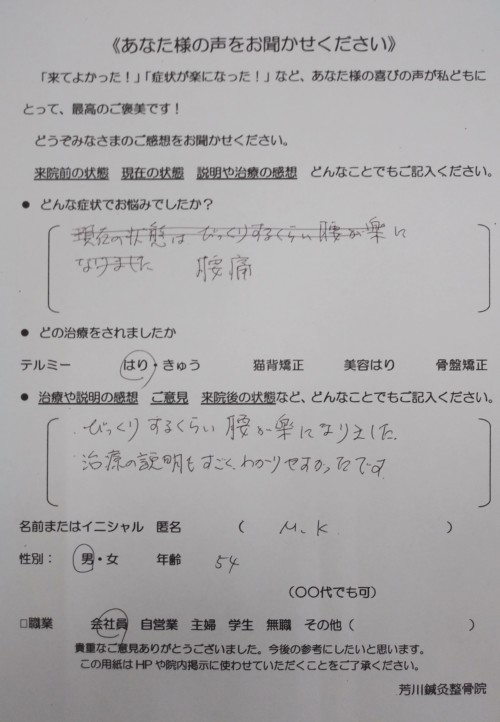 《あなた様の声をお聞かせください》
「来てよかった！」「症状が楽になった！」など、あなた様の喜びの声が私どもに
とって、最高のご褒美です！
どうぞみなさまのご感想をお聞かせください。
来院前の状態　現在の状態　説明や治療の感想　どんなことでもご記入ください。
● どんな症状でお悩みでしたか？
現在の状態は びっくりするくらい 腰が楽に
なりました　腰痛
● どの治療をされましたか
テルミー　はり・きゅう　猫背矯正　美容はり　骨盤矯正
● 治療や説明の感想　ご意見　来院後の状態など、どんなことでもご記入ください。
びっくりするくらい 腰が楽になりました。
治療の説明もすごくわかりやすかったです
名前またはイニシャル　匿名　（　M.K.　）
性別：　男・女　年齢　54
（〇〇代でも可）
□職業　会社員　自営業　主婦　学生　無職　その他（　）
貴重なご意見ありがとうございました。今後の参考にしたいと思います。
この用紙はHPや院内掲示に使わせていただくことをご了承ください。
芳川鍼灸整骨院